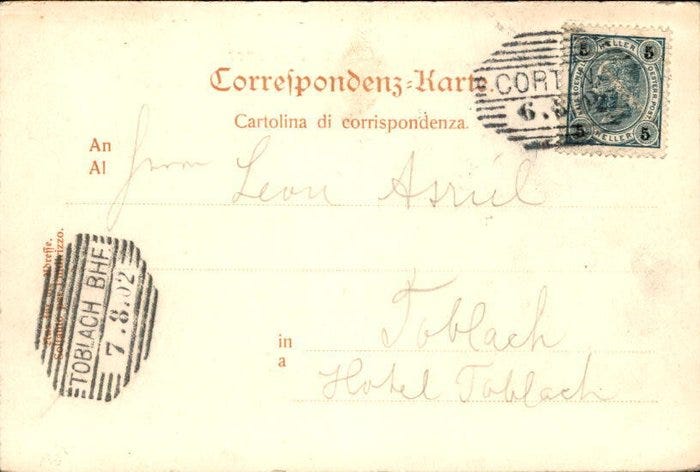 Correspondenz-Karte.
Cartolina di corrispondenza.
CORT
6.8.02
5 HELLER 5
5 HELLER 5
An Herrn Leon Asriel
Al
Nur für die Adresse.
Soltanto per l'indirizzo.
TOBLACH BHF
7.8.02
in Toblach
a Hotel Toblach